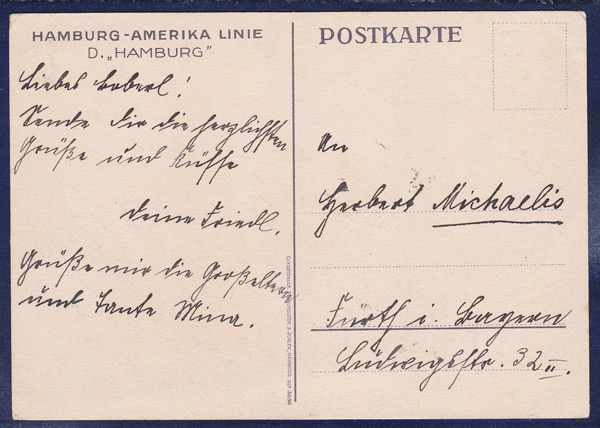 HAMBURG-AMERIKA LINIE
D. „HAMBURG"
Liebes Boberl!
Sende dir die herzlichsten
Grüße und Küsse
deine Friedl.
Grüße mir die Großeltern
und Tante Mina.
POSTKARTE
An
Herbert Michaelis
Fürth i. Bayern
Ludwigstr. 32 II.